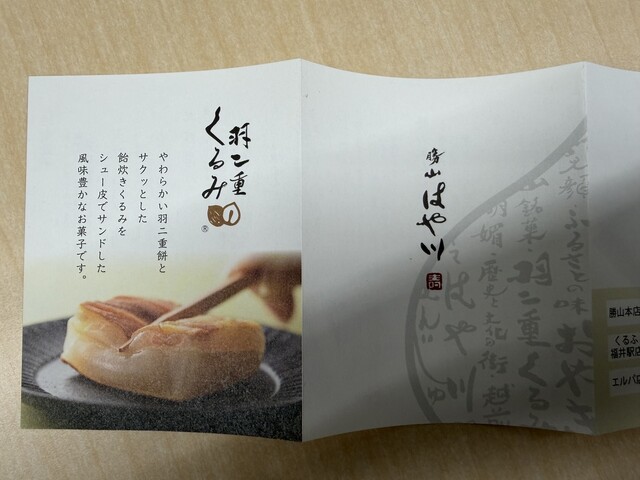 羽二重
くるみ
®
やわらかい羽二重餅と
サクッとした
飴炊きくるみを
シュー皮でサンドした
風味豊かなお菓子です。
勝山
はや川
ふるさとの味
銘菓 羽二重くるみ
歴史と文化の街 越前
はや川
勝山本店
くるふ
福井駅店
エルパ店